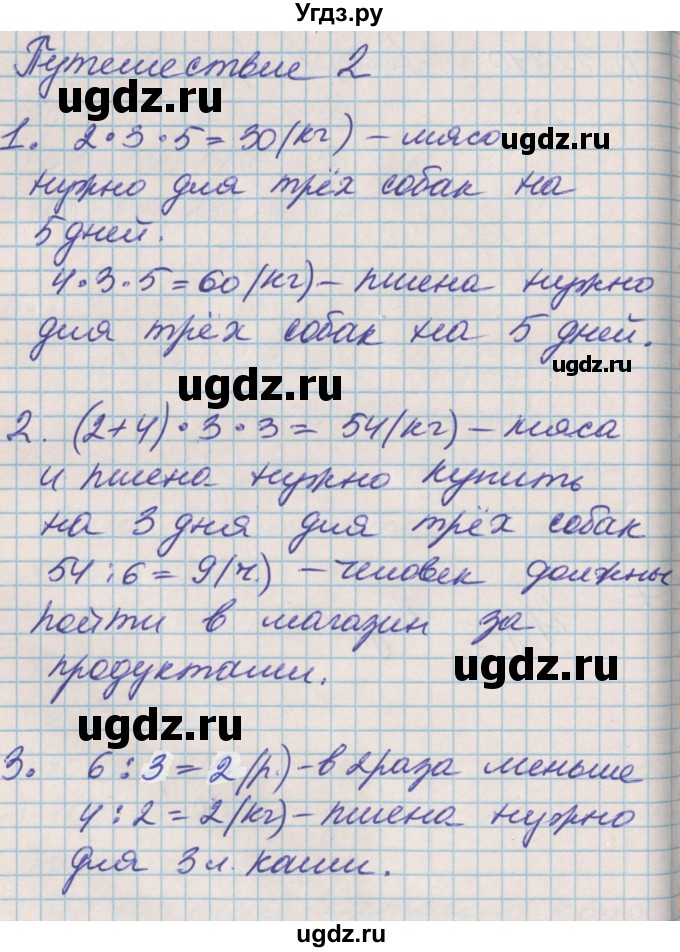 Угдз.ру
Путешествие 2
ugdz.ru
1. 2·3·5=30(кг) – мясо
ugdz.ru
нужно для трёх собак на
5 дней.
4·3·5=60(кг) – пшена нужно
для трёх собак на 5 дней.
ugdz.ru
ugdz.ru
2. (2+4)·3·3= 54(кг) – мяса
и пшена нужно купить
на 3 дня для трёх собак
54:6= 9(ч.) – человек должны
пойти в магазин за
ugdz.ru
продуктами.
ugdz.ru
3. 6:3=2(р.) – в 2раза меньше
4:2=2(кг) – пшена нужно
для 3 л. каши.
ugdz.ru